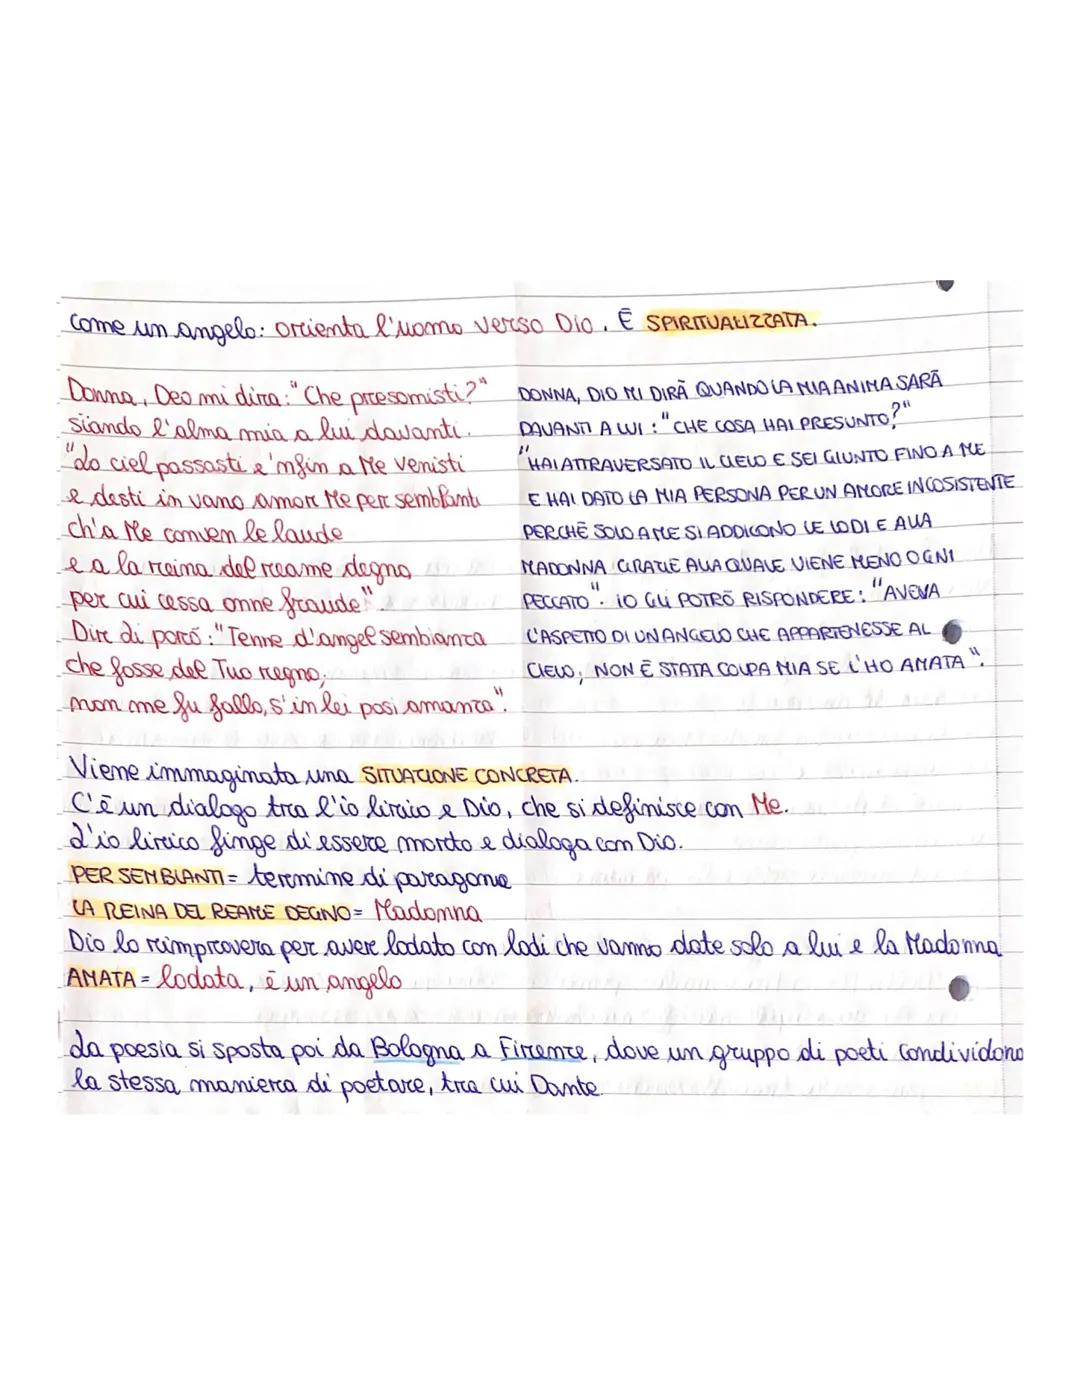 come un angelo: orienta l'uomo verso Dio. È SPIRITUALIZZATA.
Donna, Deo mi dira: "Che presomisti?"
siando l'alma mia a lui davanti.
"Lo ciel passasti e 'nfin a Me venisti
e desti in vano amor Me per semblanti
ch'a Me conven le laude
e a la reina del reame degno
per cui cessa onne fraude".
Dir di porò: "Tenne d'angel sembianza
che fosse del Tuo regno;
non me fu fallo, s'in lei posi amanza".
DONNA, DIO MI DIRÀ QUANDO LA MIA ANIMA SARÀ
DAVANTI A LUI: "CHE COSA HAI PRESUNTO?"
"HAI ATTRAVERSATO IL CIELO E SEI GIUNTO FINO A ME
E HAI DATO LA MIA PERSONA PER UN AMORE INCOSISTENTE
PERCHÈ SOLO A ME SI ADDICONO LE LODI E ALLA
MADONNA GRAZIE ALLA QUALE VIENE MENO OGNI
PECCATO". IO GLI POTRÒ RISPONDERE: "AVEVA
L'ASPETTO DI UN ANGELO CHE APPARTENESSE AL
CIELO, NON È STATA COLPA MIA SE L'HO AMATA".
Viene immaginata una SITUAZIONE CONCRETA.
C'è un dialogo tra l'io lirico e Dio, che si definisce con Me.
L'io lirico finge di essere morto e dialoga con Dio.
PER SEMBLANTI = termine di paragone
LA REINA DEL REAME DEGNO = Madonna
Dio lo rimprovera per avere lodato con lodi che vanno date solo a lui e la Madonna
AMATA = lodata, è un angelo
La poesia si sposta poi da Bologna a Firenze, dove un gruppo di poeti condividono
la stessa maniera di poetare, tra cui Dante.